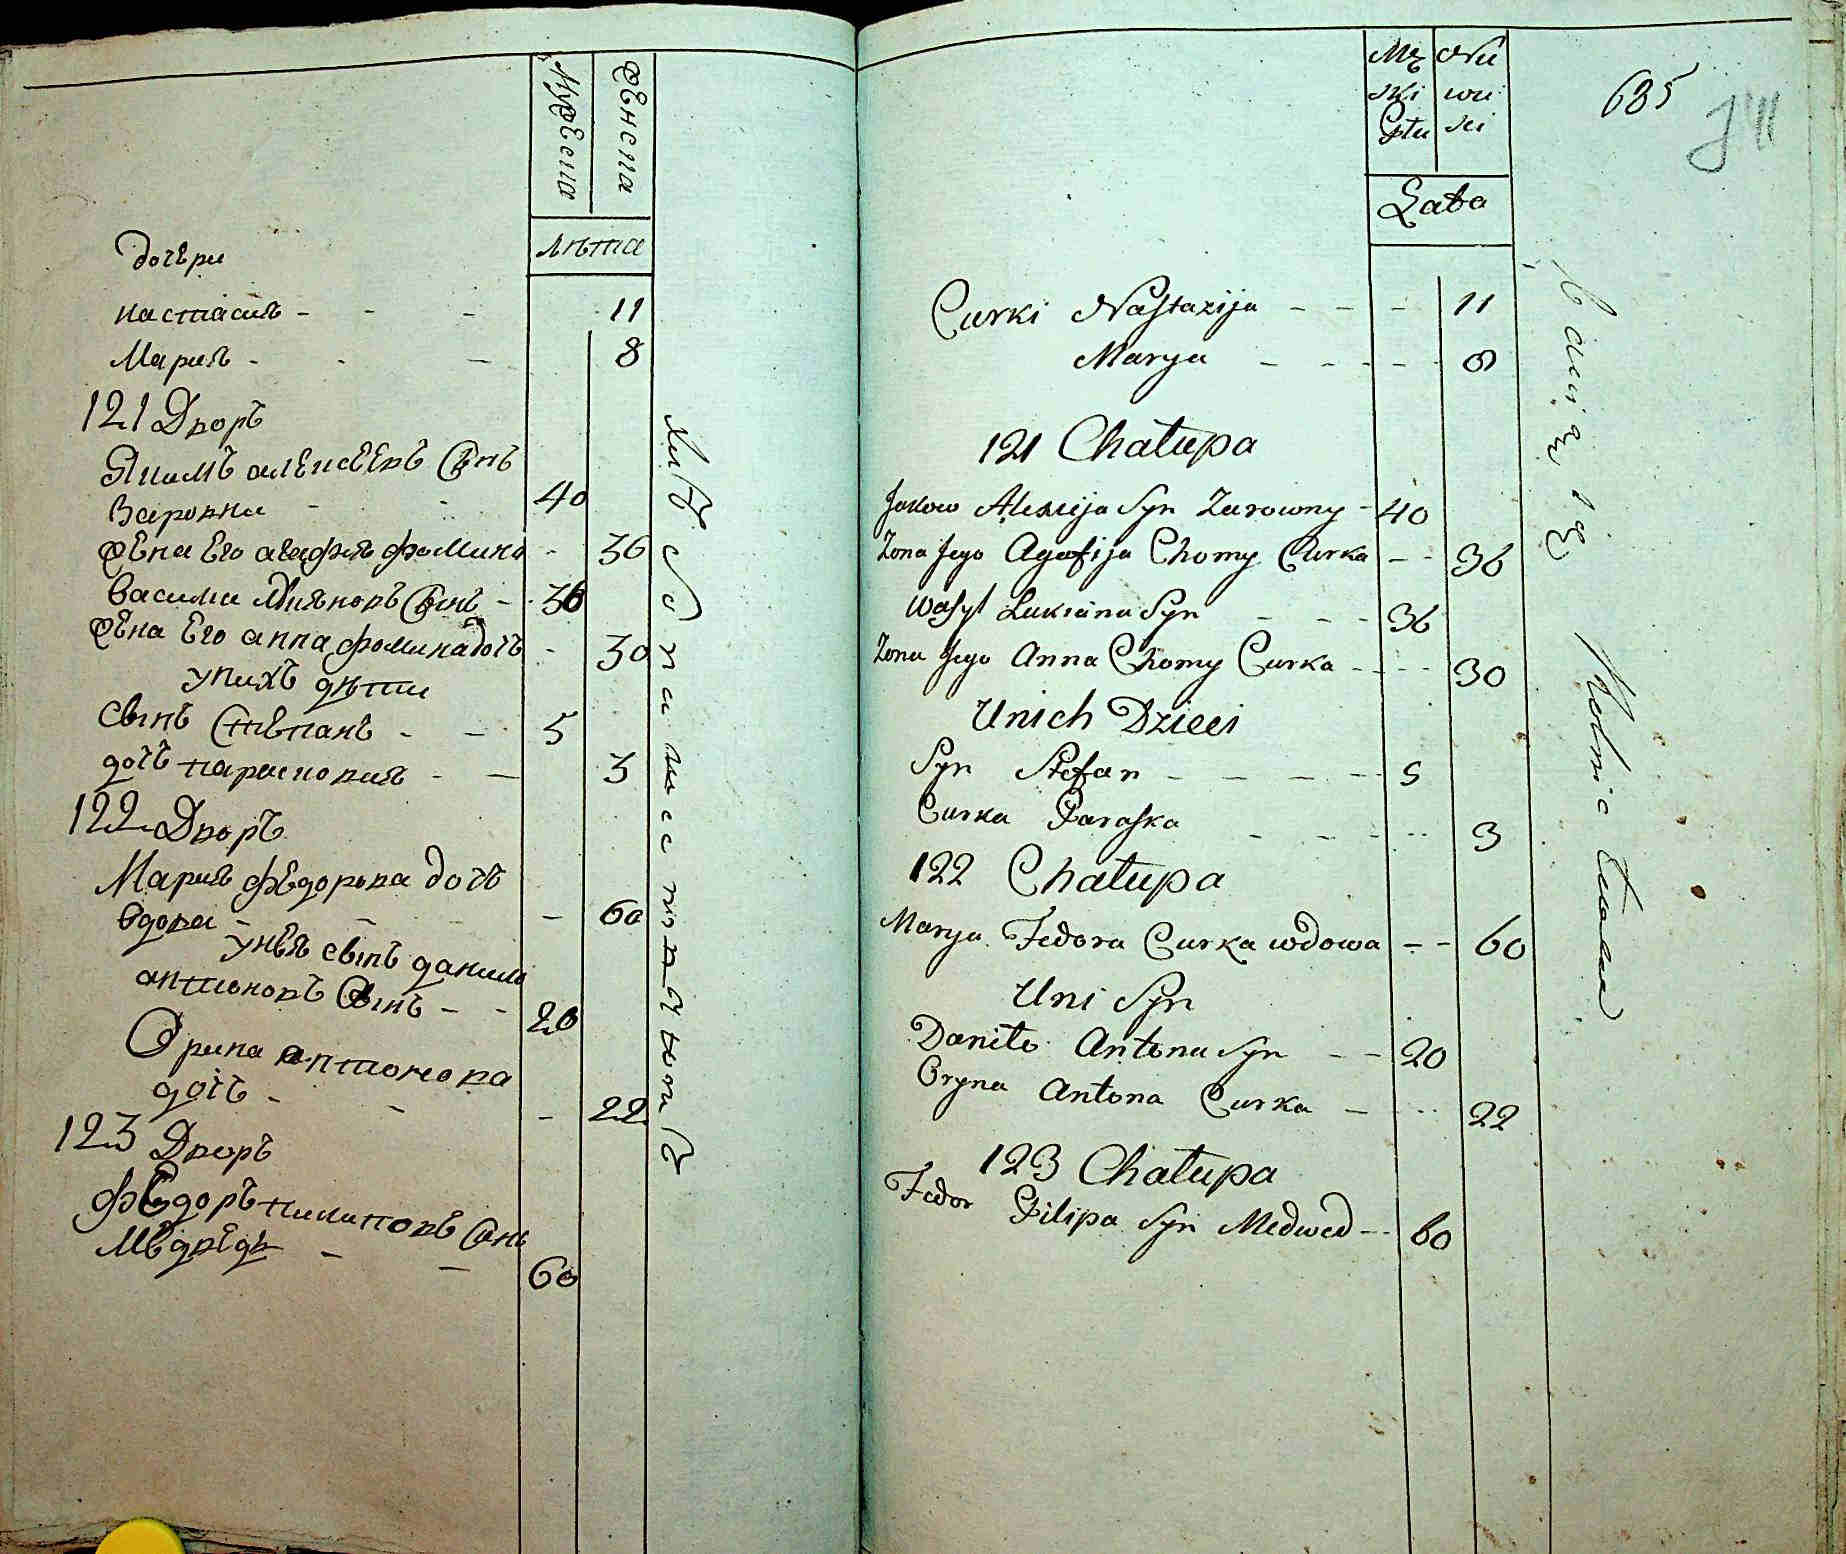 Мужеска
Женска
лѣта
дочери
настасия - - - 11
Мария - - - 8
121 Дворъ
Якимъ алексеевъ Сынъ
40
жена Его агафия фомина - 36
василий Сынъ - 36
жена Его анна фомина дочь - 30
унихъ дѣти
сынъ Степанъ - - 5
дочь парасковия - - 3
122 Дворъ
Мария федорова дочь
вдова - - - - 60
унея сынъ данило
антоновъ Сынъ - - 20
Орина антонова
дочь - - - 22
123 Дворъ
федоръ пилиповъ Сынъ
Медведь - - 60
Mę Nie
ski wie
Płu ski
685
Lata
Curki Nastazija - - - 11
Marya - - - - 8
121 Chałupa
Jakow Alexieja Syn - 40
Zona Jego Agafija Chomy Curka - - 36
Wasyl Łukiana Syn - - - 36
Zona Jego Anna Chomy Curka - - - 30
Unich Dzieci
Syn Stefan - - - - - 5
Curka Paraska - - - - 3
122 Chałupa
Marya Fedora Curka wdowa - - 60
Uni Syn
Daniło Antona Syn - - 20
Oryna Antona Curka - - 22
123 Chałupa
Fedor Filipa Syn Medwed - - 60